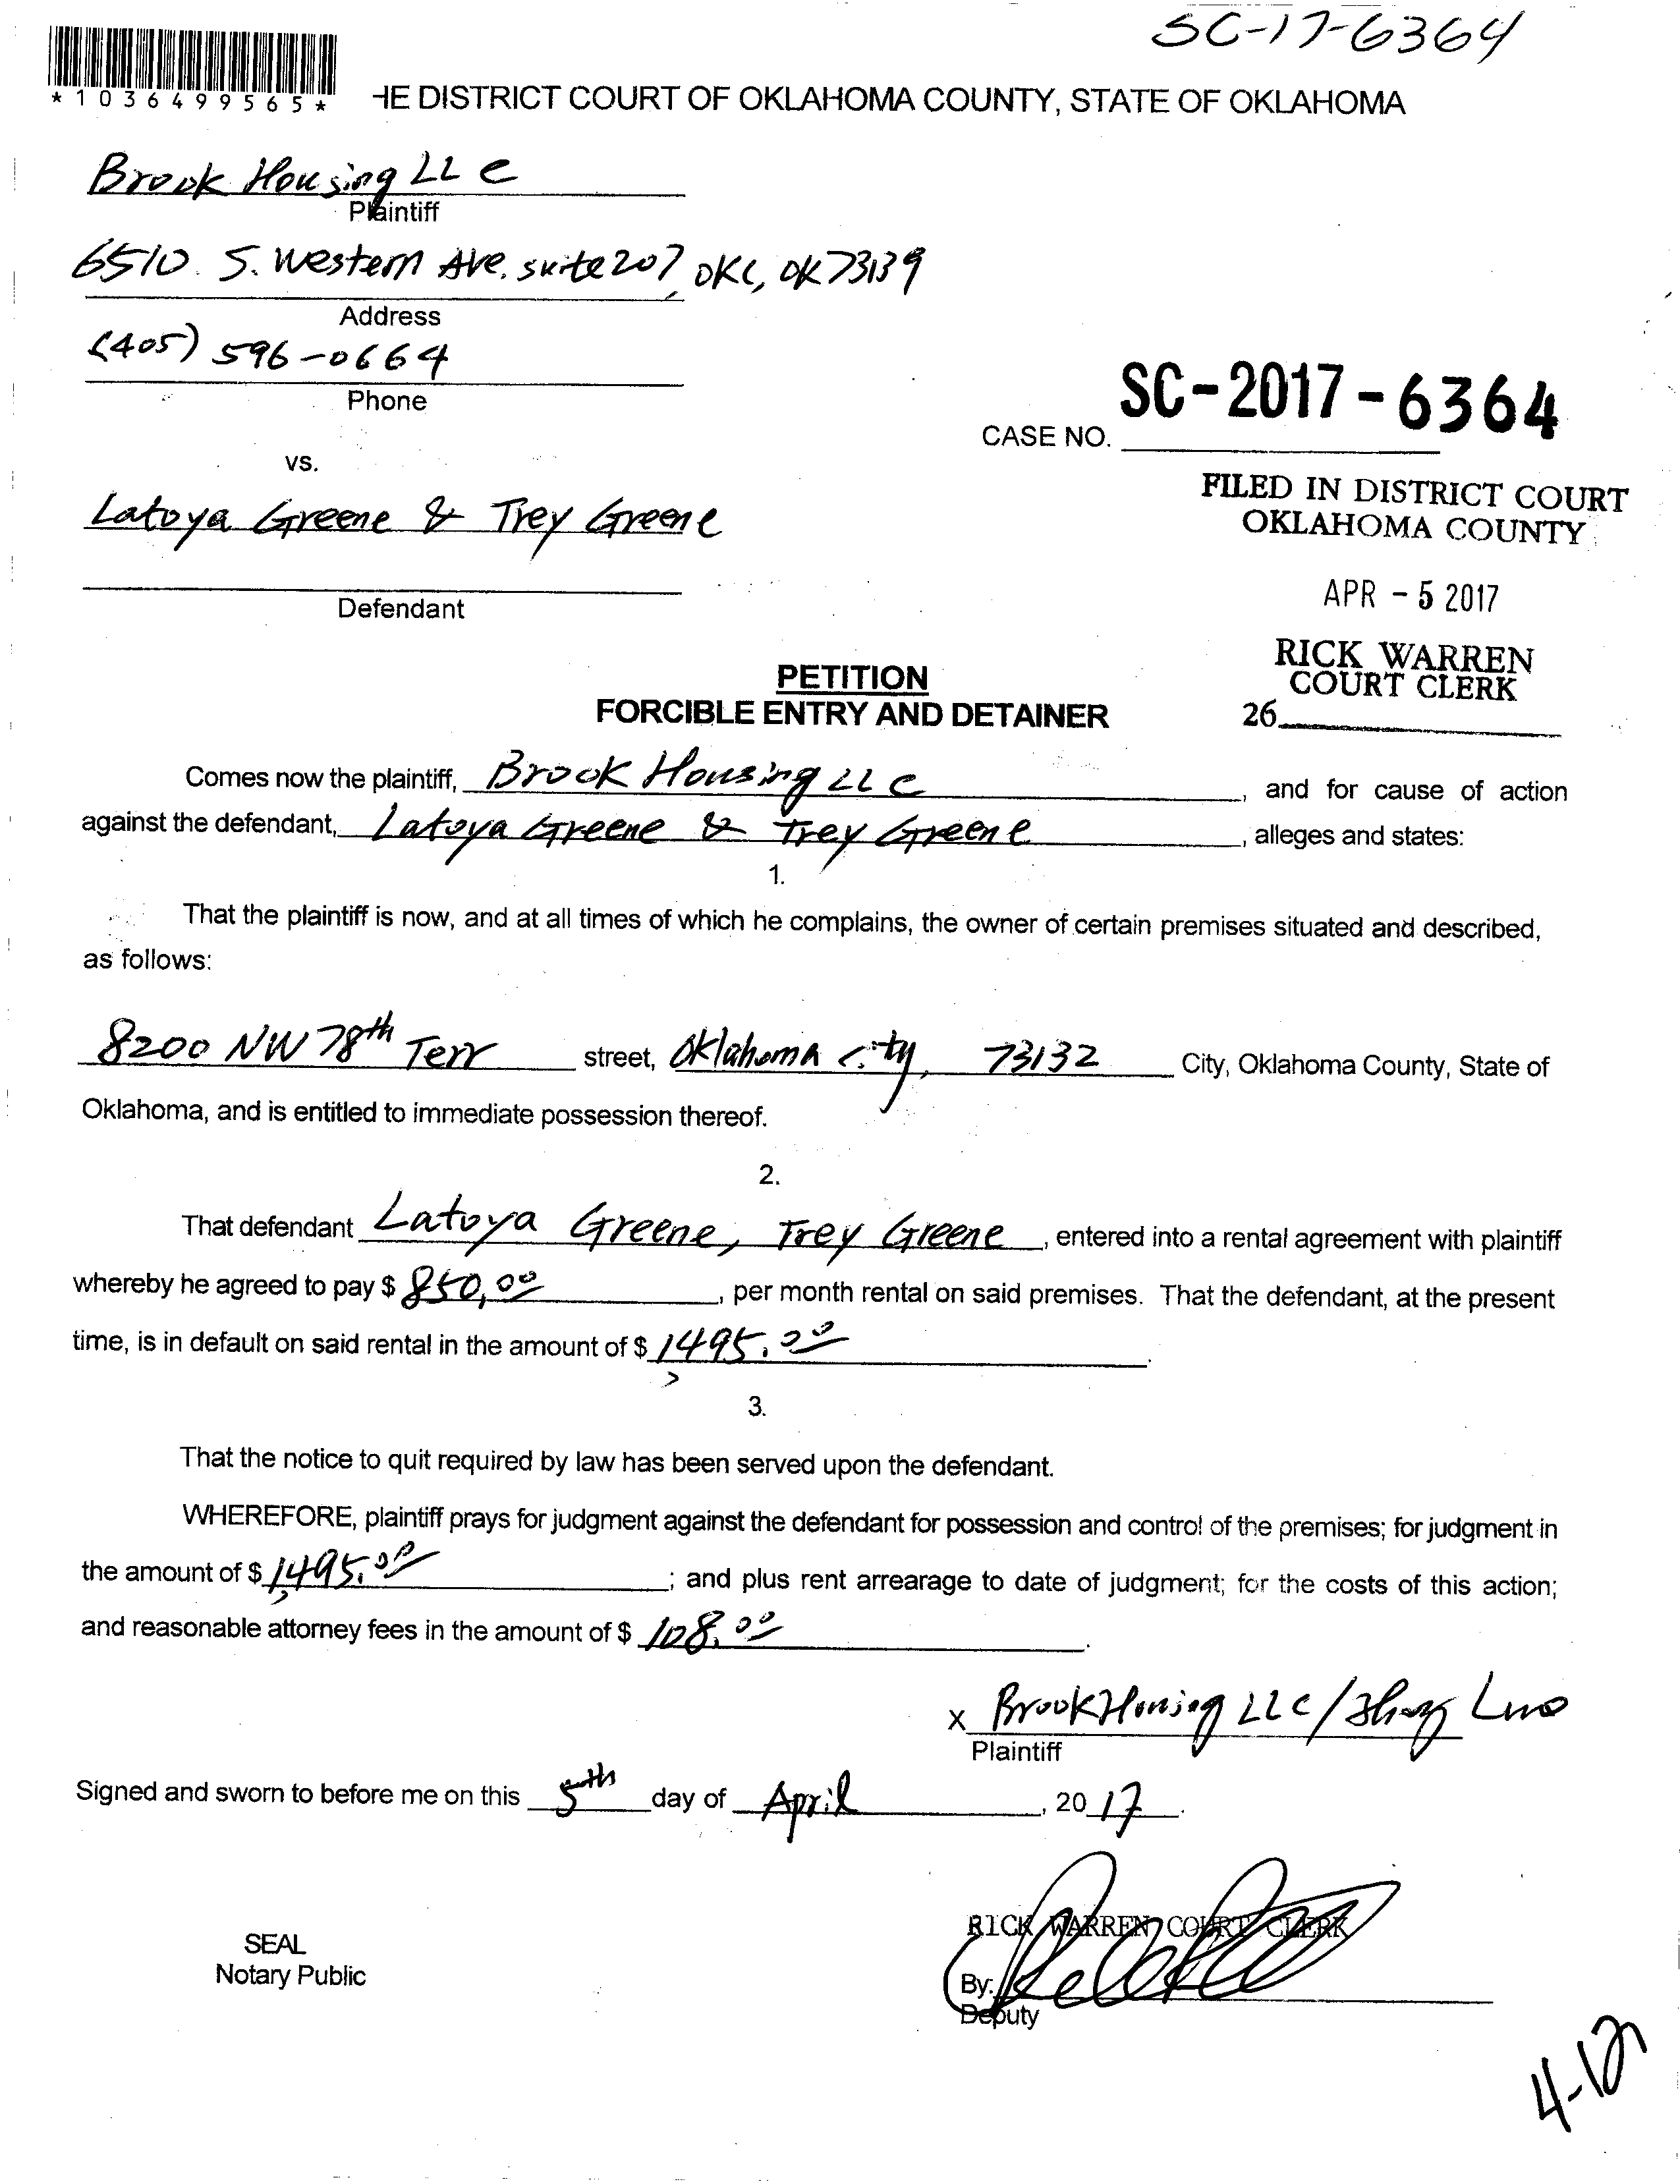 SC-17-6364
*1036499565*
HE DISTRICT COURT OF OKLAHOMA COUNTY, STATE OF OKLAHOMA
Brook Housing LLC
Plaintiff
6510. S. Western Ave. suite 207, OKC, OK 73139
Address
(405) 596-0664
Phone
SC-2017-6364
CASE NO.
vs.
FILED IN DISTRICT COURT
OKLAHOMA COUNTY
Latoya Greene & Trey Greene
APR - 5 2017
Defendant
RICK WARREN
COURT CLERK
26
PETITION
FORCIBLE ENTRY AND DETAINER
Comes now the plaintiff, Brook Housing LLC, and for cause of action
against the defendant, Latoya Greene & Trey Greene, alleges and states:
1.
That the plaintiff is now, and at all times of which he complains, the owner of certain premises situated and described,
as follows:
8200 NW 78th Terr street, Oklahoma City, 73132 City, Oklahoma County, State of
Oklahoma, and is entitled to immediate possession thereof.
2.
That defendant Latoya Greene, Trey Greene, entered into a rental agreement with plaintiff
whereby he agreed to pay $ 850.00, per month rental on said premises. That the defendant, at the present
time, is in default on said rental in the amount of $ 1,495.00.
3.
That the notice to quit required by law has been served upon the defendant.
WHEREFORE, plaintiff prays for judgment against the defendant for possession and control of the premises; for judgment in
the amount of $ 1,495.00; and plus rent arrearage to date of judgment; for the costs of this action;
and reasonable attorney fees in the amount of $ 108.00.
x Brook Housing LLC / Luo
Plaintiff
Signed and sworn to before me on this 5th day of April, 2017.
RICK WARREN COURT CLERK
SEAL
Notary Public
By:
Deputy
4-12